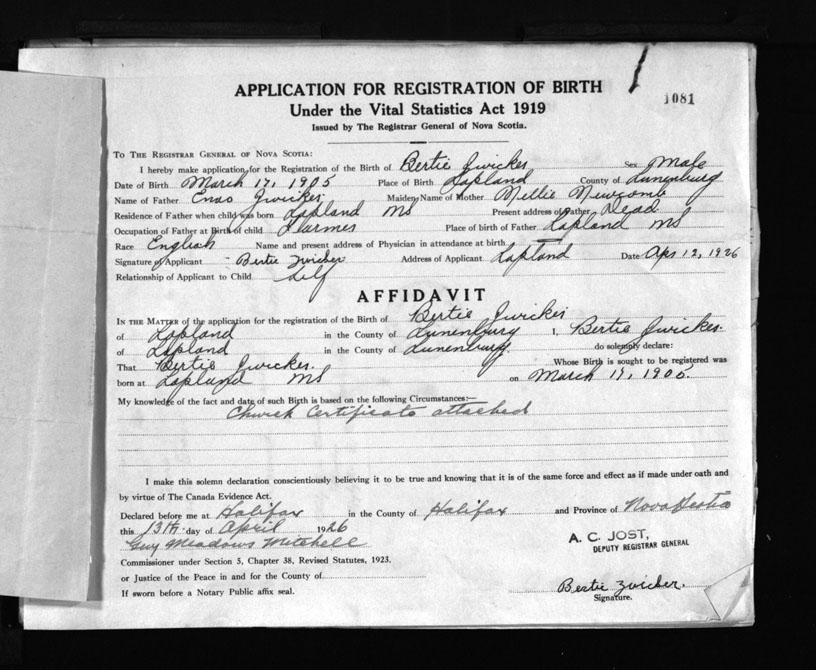 1081
APPLICATION FOR REGISTRATION OF BIRTH
Under the Vital Statistics Act 1919
Issued by The Registrar General of Nova Scotia.
TO THE REGISTRAR GENERAL OF NOVA SCOTIA:
I hereby make application for the Registration of the Birth of Bertie Zwicker Sex Male
Date of Birth March 17, 1905 Place of Birth Lapland County of Lunenburg
Name of Father Enos Zwicker Maiden Name of Mother Millie Newcomb
Residence of Father when child was born Lapland NS Present address of Father Dead
Occupation of Father at Birth of child Farmer Place of birth of Father Lapland NS
Race English Name and present address of Physician in attendance at birth
Signature of Applicant Bertie Zwicker Address of Applicant Lapland Date Apr 12, 1926
Relationship of Applicant to Child Self
AFFIDAVIT
IN THE MATTER of the application for the registration of the Birth of Bertie Zwicker
of Lapland in the County of Lunenburg I, Bertie Zwicker
of Lapland in the County of Lunenburg do solemnly declare:
That Bertie Zwicker Whose Birth is sought to be registered was
born at Lapland NS on March 17, 1905.
My knowledge of the fact and date of such Birth is based on the following Circumstances:—
Church Certificate attached
I make this solemn declaration conscientiously believing it to be true and knowing that it is of the same force and effect as if made under oath and
by virtue of The Canada Evidence Act.
Declared before me at Halifax in the County of Halifax and Province of Nova Scotia
this 13th day of April 1926
Guy Meadows Mitchell
A. C. JOST,
DEPUTY REGISTRAR GENERAL
Commissioner under Section 5, Chapter 38, Revised Statutes, 1923.
or Justice of the Peace in and for the County of
If sworn before a Notary Public affix seal.
Bertie Zwicker.
Signature.